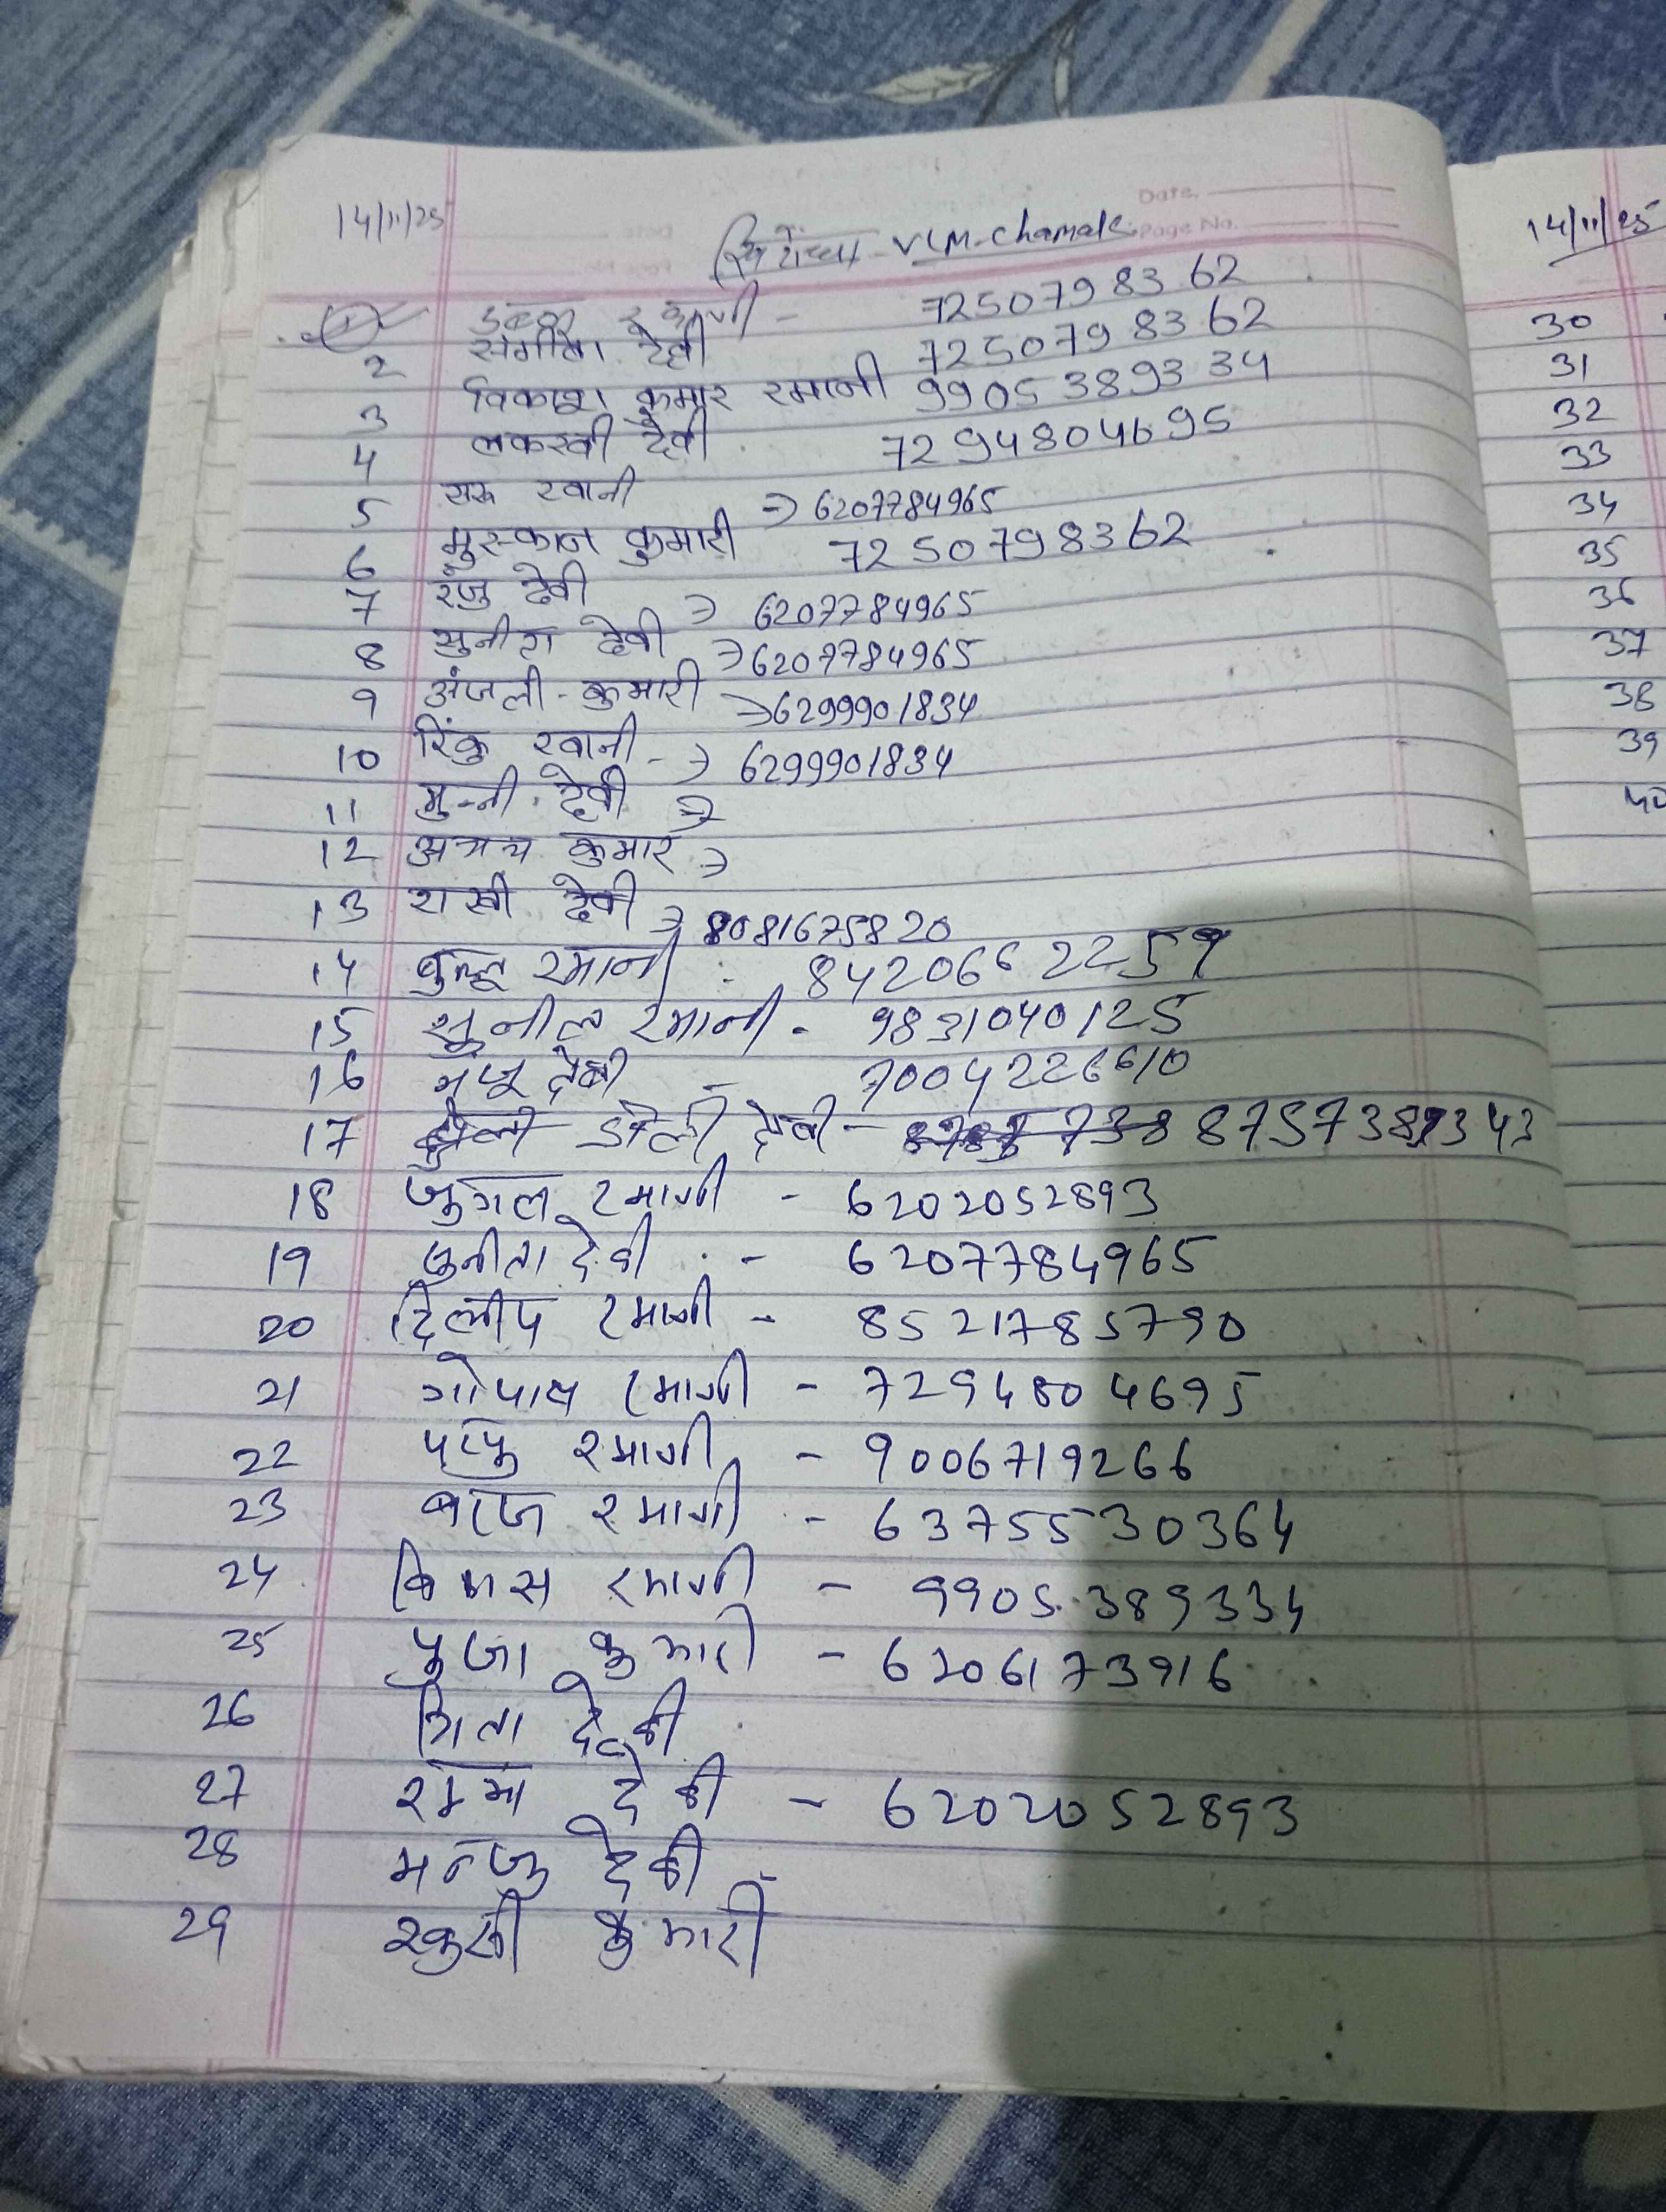 14/11/25
VLM-Chamak
Date.
Page No.
7250798362
2 संगीता देवी 7250798362
3 विकाश कुमार रमानी 9905389334
4 लकखी देवी 7294804695
5 रवानी → 6207784965
6 मुस्कान कुमारी 7250798362
7 रंजु देवी → 6207784965
8 सुनीता देवी → 6207784965
9 अंजली - कुमारी → 6299901834
10 रिंकु रवानी - → 6299901834
11 मुन्नी देवी →
12 कुमार →
13 राखी देवी → 8081675820
14 रमानी - 8420662259
15 सुनील रमानी - 9831040125
16 मंजू देवी - 7004226610
17 डोली देवी -
18 जुगल रमाणी - 6202052893
19 सुनीता देवी - 6207784965
20 दिलीप रमाणी - 8521785790
21 गोपाल रमाणी - 7294804695
22 पप्पु रमाणी - 9006719266
23 रमाणी - 6375530364
24 रमाणी - 9905389334
25 पुजा कुमारी - 6206173916
26 गिता देवी
27 देवी - 6202052893
28 मन्जु देवी
29 खुशी कुमारी
14/11/25
30
31
32
33
34
35
36
37
38
39
40